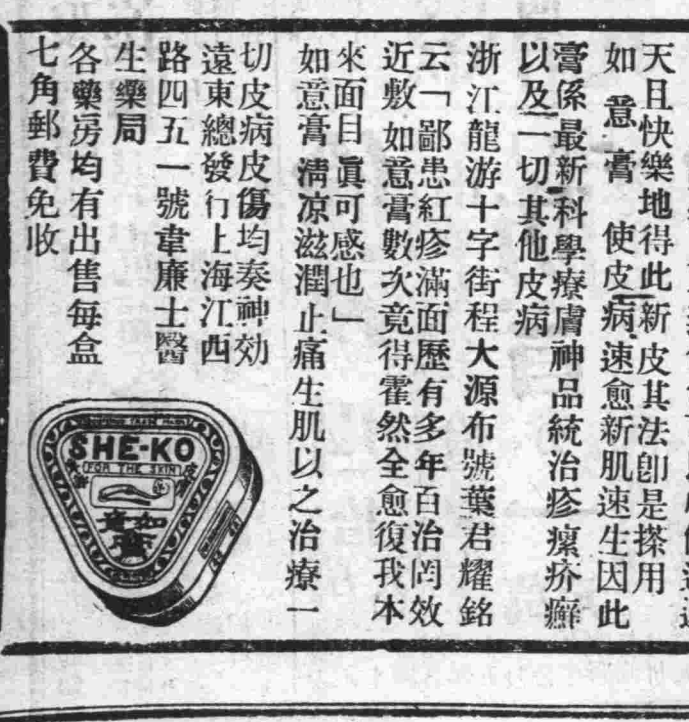 天且快樂地得此新皮其法卽是搽用
如意膏使皮病速愈新肌速生因此
膏係最新科學療膚神品統治疹瘰疥癬
以及一切其他皮病
浙江龍游十字街程大源布號葉君耀銘
云「鄙患紅疹滿面歷有多年百治罔效
近敷如意膏數次竟得霍然全愈復我本
來面目眞可感也」
如意膏淸凉滋潤止痛生肌以之治療一
切皮病皮傷均奏神効
遠東總發行上海江西
路四五一號韋廉士醫
生藥局
各藥房均有出售每盒
七角郵費免收
SHE-KO
FOR THE SKIN
如意
膏